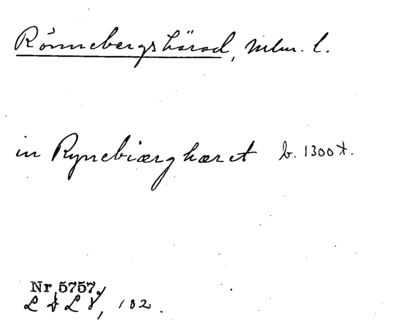 Rönnebergs härad, Mlm. l.
in Rynebiærghæret b. 1300 t.
Nr 5757
L D L V, 102.